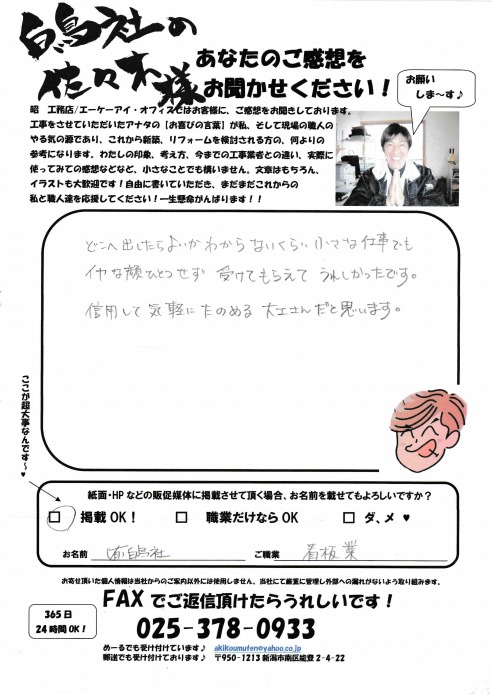 白鳥社の
佐々木様
あなたのご感想を
お聞かせください！
お願い
しま～す♪
昭 工務店/エーケーアイ・オフィスではお客様に、ご感想をお聞きしております。
工事をさせていただいたアナタの【お喜びの言葉】が私、そして現場の職人の
やる気の源であり、これから新築、リフォームを検討される方の、何よりの
参考になります。わたしの印象、考え方、今までの工事業者との違い、実際に
使ってみての感想などなど、小さなことでも構いません。文章はもちろん、
イラストも大歓迎です！自由に書いていただき、まだまだこれからの
私と職人達を応援してください！一生懸命がんばります！！
どこへ出したらよいかわからないくらい小さな仕事でも
イヤな顔ひとつせず 受けてもらえて うれしかったです。
信用して気軽にたのめる 大工さんだと思います。
ここが超大事なんです～♥
紙面・HPなどの販促媒体に掲載させて頂く場合、お名前を載せてもよろしいですか？
掲載OK！ 職業だけならOK ダ、メ ♥
お名前 ㈲白鳥社 ご職業 看板業
お寄せ頂いた個人情報は当社からのご案内以外には使用しません。当社にて厳重に管理し外部への漏れがないよう取り組みます。
FAXでご返信頂けたらうれしいです！
365日
24時間OK！
025-378-0933
めーるでも受け付けています♪ akikoumuten@yahoo.co.jp
郵送でも受け付けております♪ 〒950-1213 新潟市南区能登2-4-22